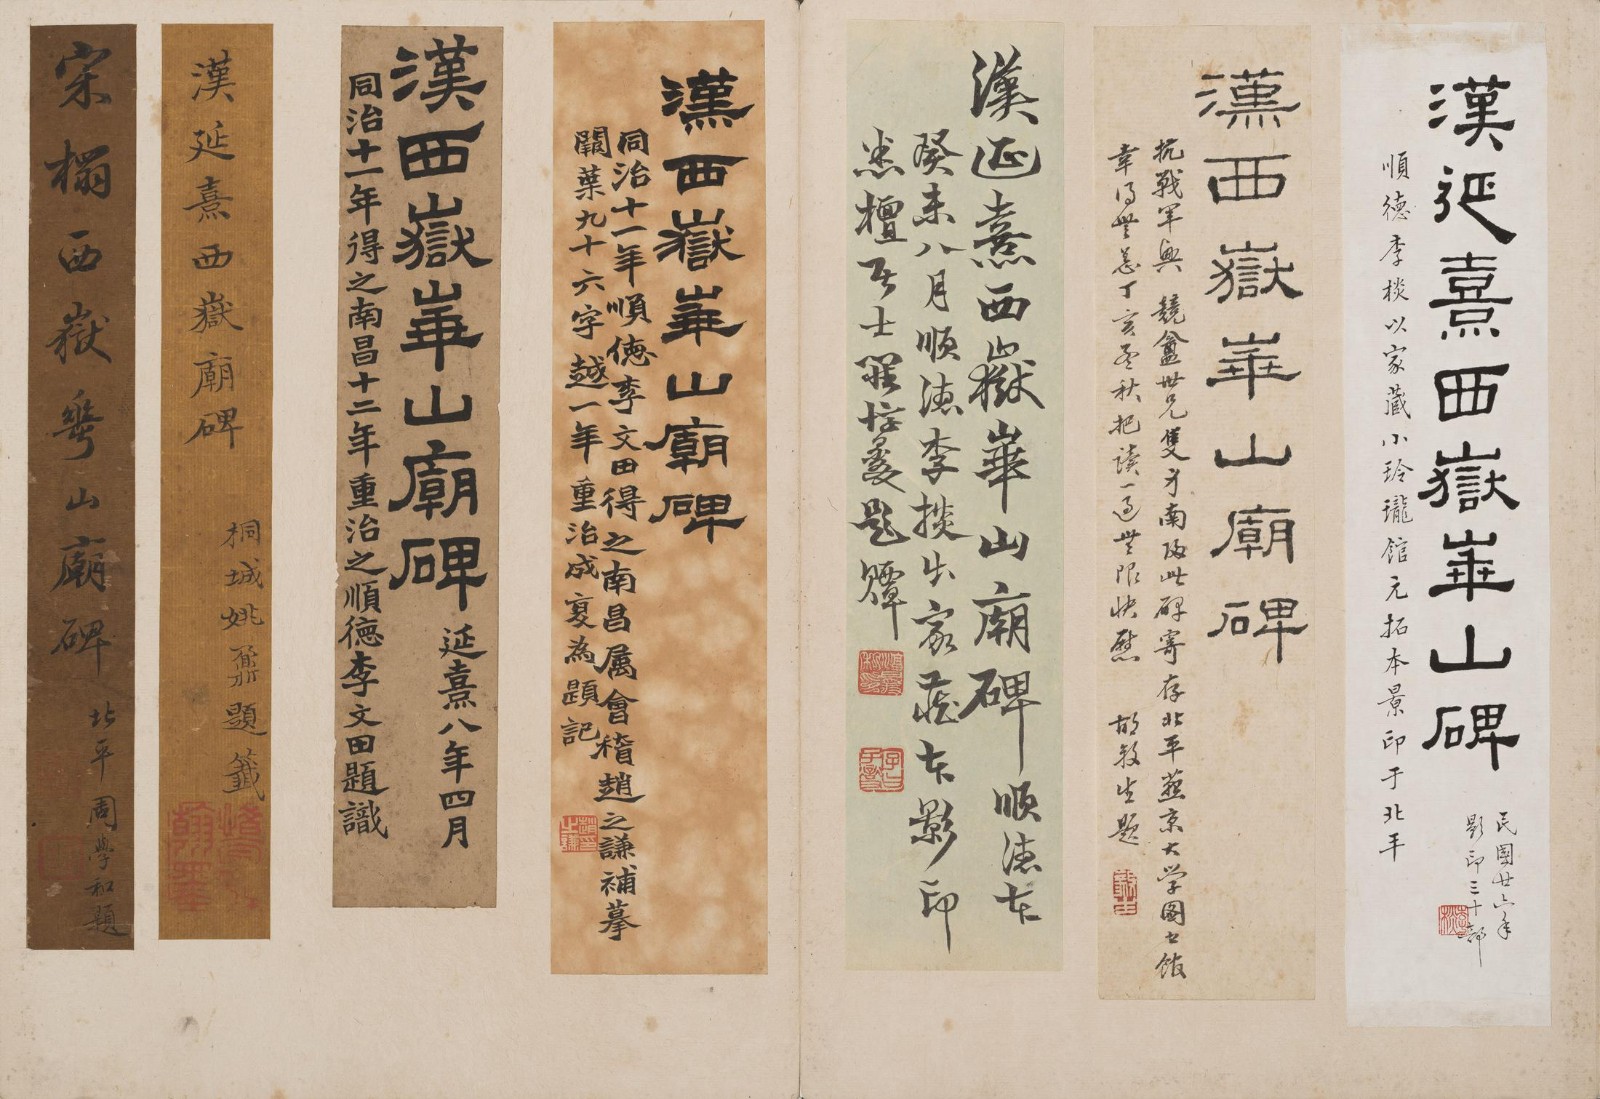 漢延熹西嶽華山碑
順德李棪以家藏小玲瓏館元拓本景印于北平
民國廿六年
影印三十部
漢西嶽華山廟碑
抗戰軍興 競盦世兄隻身南海此碑寄存北平燕京大學圖書館
幸得無恙丁亥孟秋把讀一過無限快慰 胡毅生題
漢延熹西嶽華山廟碑 順德本
癸未八月順德李棪出家藏本影印
悉檀居士羅惇㬊題贉
漢西嶽華山廟碑
同治十一年順德李文田得之南昌屬會稽趙之謙補摹
闕葉九十六字越一年重治成夏為題記
漢西嶽華山廟碑 延熹八年四月
同治十一年得之南昌十二年重治之順德李文田題識
漢延熹西嶽廟碑
桐城姚鼐題籤
宋榻西嶽華山廟碑
北平周學和題